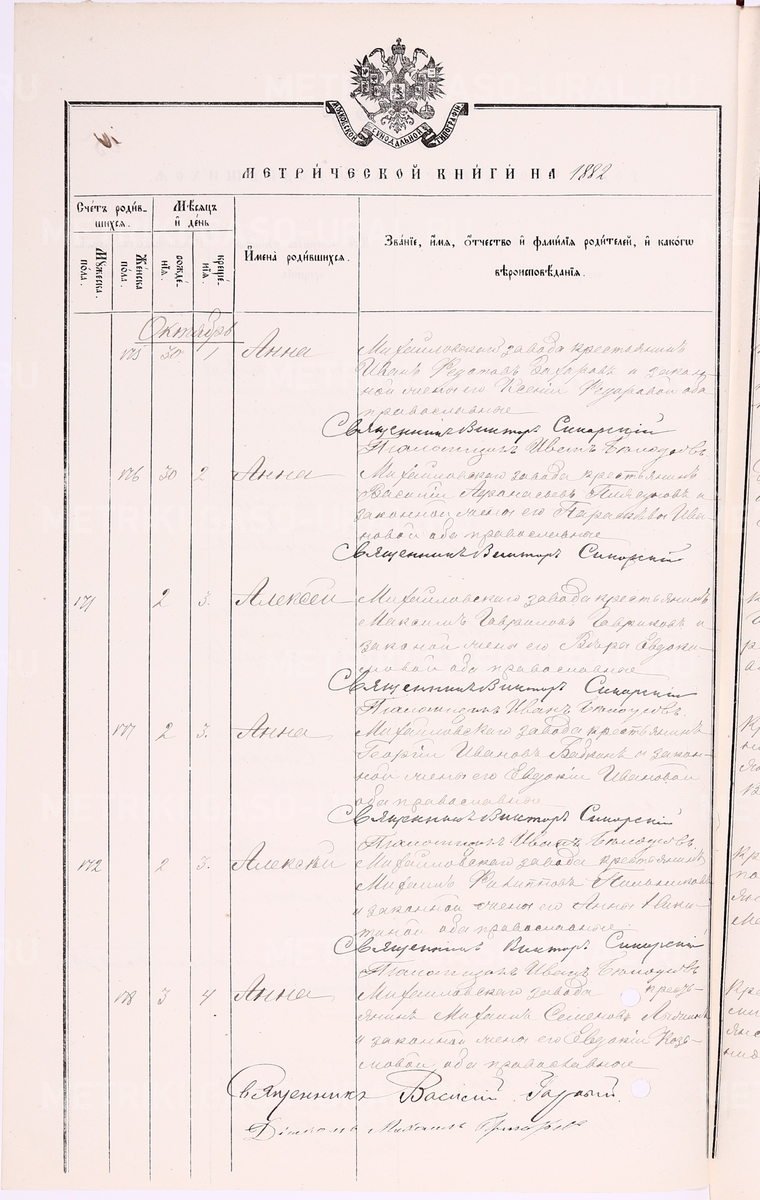 Московской Сѵнодальной Типографіи
МЕТРИ́ЧЕСКОЙ КНИ́ГИ НА 1882
Сче́тъ роди́в-
шихся.
Мꙋжеска по́ла.
Же́нска по́ла.
Мѣ́сяцъ
и҆ де́нь
рожде́нія.
креще́нія.
И҆мена̀ роди́вшихся.
Зва́ніе, и҆́мя, ѻ҆́тчество и҆ фами́лія роди́телей, и҆ како́гѡ
вѣроисповѣ́данія.
Октябрь
175 30 1 Анна Михайловскаго завода крестьянинъ
Иванъ Захаровъ и закон-
ной жены его Ксеніи Федоровой оба
православные
Священникъ Викторъ Сикорскій
Псаломщикъ Иванъ
176 30 2 Анна Михайловскаго завода крестьянинъ
Василій Афанасьевъ и
законной жены его Параскевы Ива-
новой оба православные
Священникъ Викторъ Сикорскій
171 2 3. Алексѣй Михайловскаго завода крестьянинъ
Максимъ Гавриловъ и
законой жены его Вѣра Евдоки-
мовой оба православные
Священникъ Викторъ Сикорскій
Псаломщикъ Иванъ
177 2 3. Анна Михайловскаго завода крестьянинъ
Георгій Ивановъ и закон-
ной жены его Евдокіи Ивановой
оба православные
Священникъ Викторъ Сикорскій
Псаломщикъ Иванъ
172 2 3. Алексѣй Михайловскаго завода крестьянинъ
Михаилъ Филипповъ
и законной жены его Анна Ники-
тиной оба православные
Священникъ Викторъ Сикорскій
Псаломщикъ Иванъ
178 3 4 Анна Михайловскаго завода кресть-
янинъ Михаилъ Семеновъ
и законной жены его Евдокіи Козь-
мовой оба православные
Священникъ Василій
Діаконъ Михаилъ